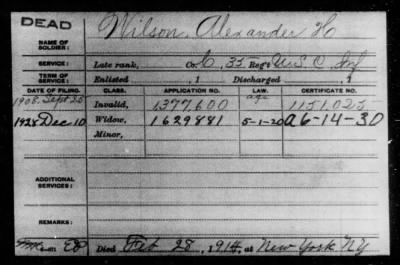 DEAD
NAME OF SOLDIER: Wilson, Alexander H
SERVICE: Late rank, Co. C, 35 Reg't U.S.C. Inf
TERM OF SERVICE: Enlisted , 1 Discharged , 1
DATE OF FILING. CLASS. APPLICATION NO. LAW. CERTIFICATE NO.
1908. Sept 25 Invalid, 1377,600 age 1151,025
1928 Dec 10 Widow, 1629881 5-1-20 A 6-14-30
Minor,
ADDITIONAL SERVICES:
REMARKS:
Died Feb 28, 1914, at New York NY